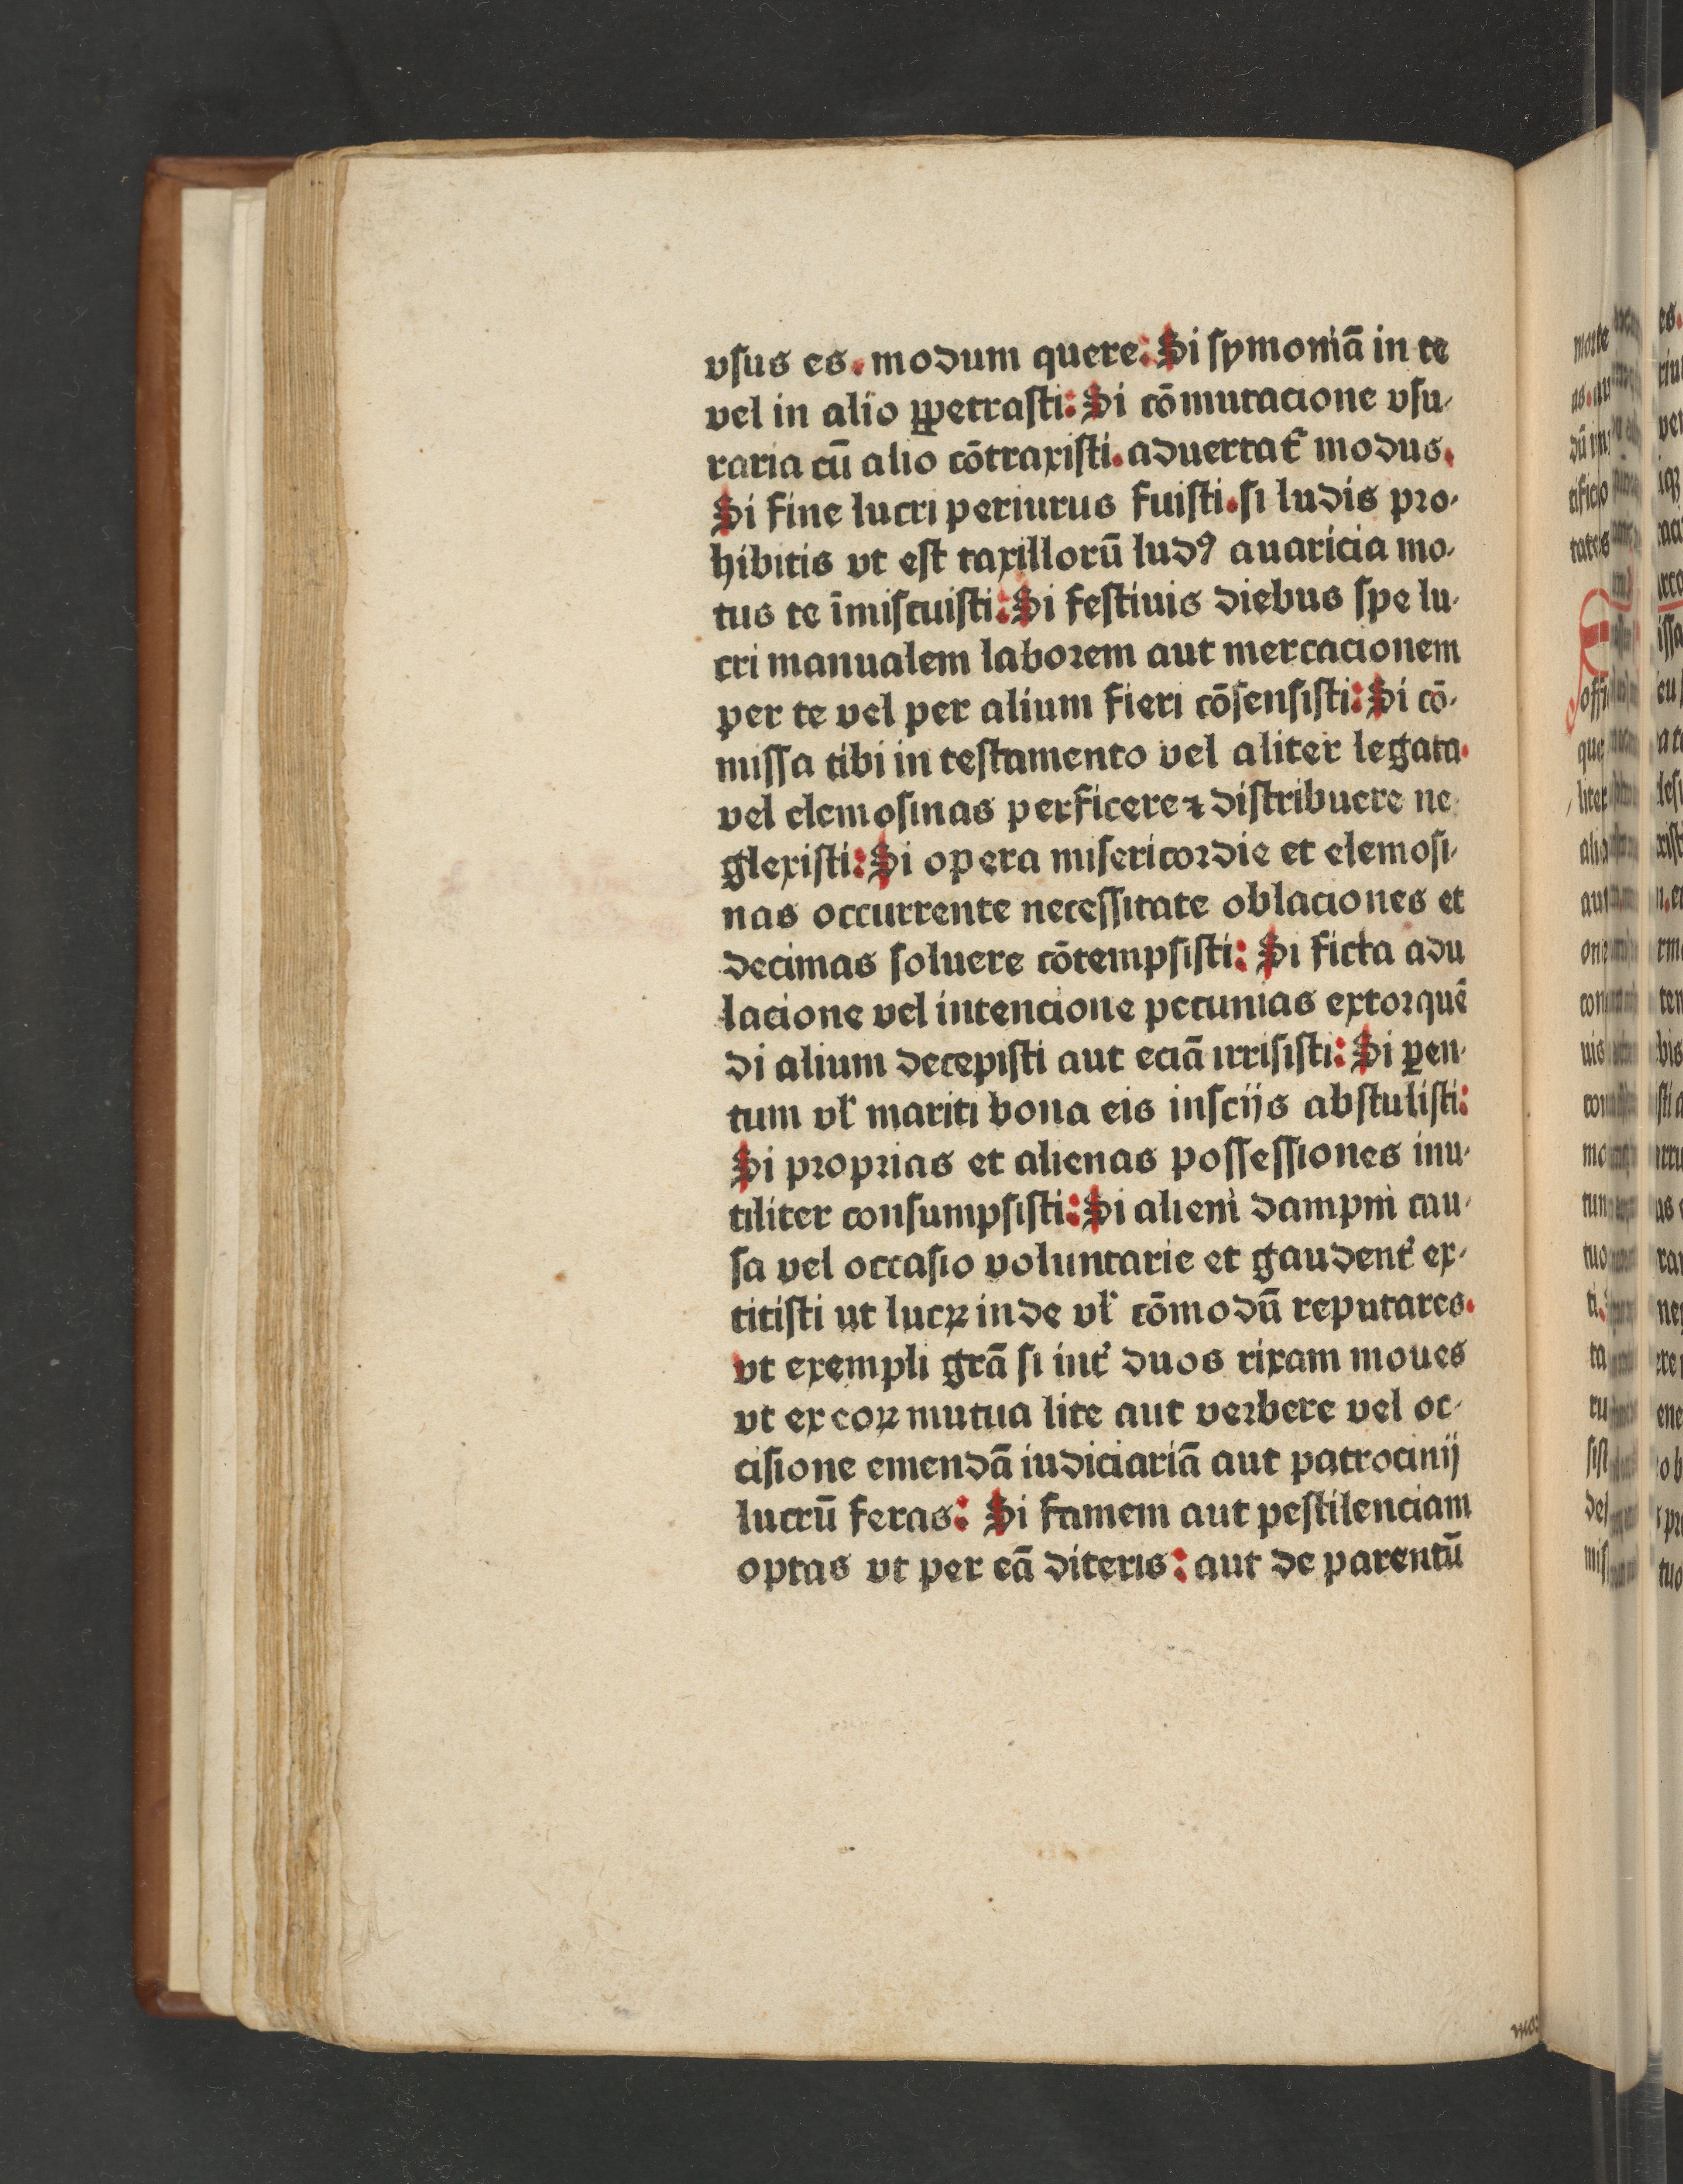 vſus es. modum quere: Si ſymoniā in te
vel in alio ꝑpetraſti: Si cōmutacione vſu-
raria cū alio cōtraxiſti. aduertat᷑ modus.
Si fine lucri periurus fuiſti. ſi ludis pꝛo-
hibitis vt eſt taxillorū ludꝰ auaricia mo-
tus te īmiſcuiſti: Si feſtiuis diebus ſpe lu-
cri manualem laboꝛem aut mercacionem
per te vel per alium fieri cōſenſiſti: Si cō-
miſſa tibi in teſtamento vel aliter legata.
vel elemoſinas perficere ⁊ diſtribuere ne-
glexiſti: Si opera miſericoꝛdie et elemoſi-
nas occurrente neceſſitate oblaciones et
decimas ſoluere cōtempſiſti: Si ficta adu
lacione vel intencione pecunias extoꝛquē
di alium decepiſti aut eciā irriſiſti: Si ꝑen-
tum vƚ mariti bona eis inſcijs abſtuliſti:
Si pꝛopꝛias et alienas poſſeſſiones inu-
tiliter conſumpſiſti: Si alieni dampni cau-
ſa vel occaſio voluntarie et gaudent᷑ ex-
titiſti ut lucꝝ inde vƚ cōmodū reputares.
vt exempli grā ſi int᷑ duos rixam moues
vt ex eoꝝ mutua lite aut verbere vel oc-
ciſione emendā iudiciariā aut patrocinij
lucrū feras: Si famem aut peſtilenciam
optas vt per eā diteris: aut de parentū